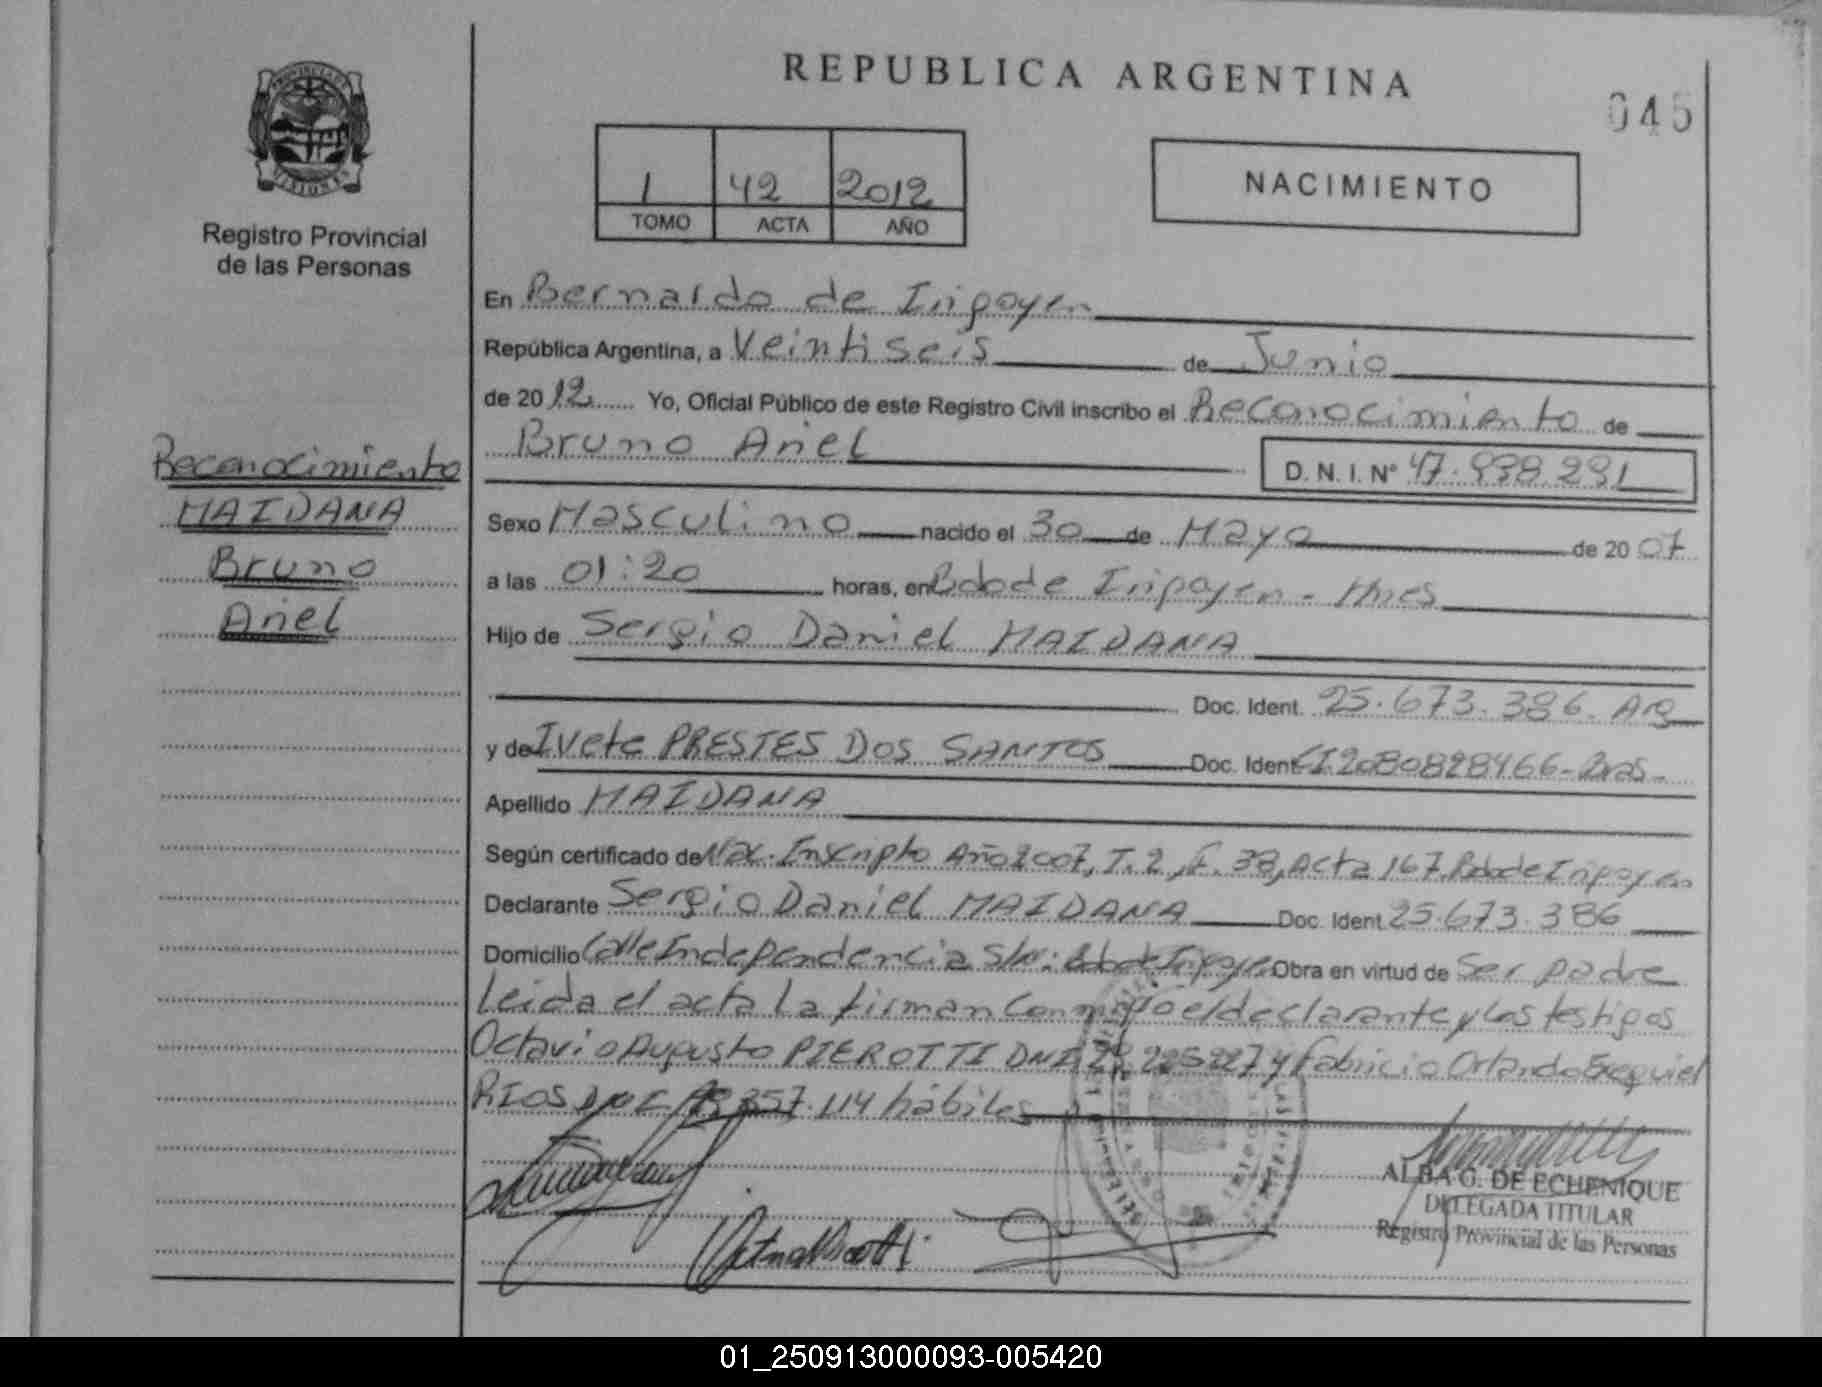 REPUBLICA ARGENTINA
045
PROVINCIA DE
MISIONES
Registro Provincial
de las Personas
1 42 2012
TOMO ACTA AÑO
NACIMIENTO
En Bernardo de Irigoyen
República Argentina, a Veintiseis de Junio
de 2012 Yo, Oficial Público de este Registro Civil inscribo el Reconocimiento de
Bruno Ariel D. N. I. Nº 47.938.291
Reconocimiento
MAIDANA
Bruno
Ariel
Sexo Masculino nacido el 30 de Mayo de 2007
a las 01:20 horas, en Bdo de Irigoyen - Mnes
Hijo de Sergio Daniel MAIDANA
Doc. Ident. 25.673.386. Arg
y de Ivete PRESTES DOS SANTOS Doc. Ident CI 2080828466-Bras-
Apellido MAIDANA
Según certificado de Nac. Inscripto Año 2007, T. 2, F. 38, Acta 167. Bdo de Irigoyen
Declarante Sergio Daniel MAIDANA Doc. Ident. 25.673.386
Domicilio Calle Independencia S/N: Bdo de Irigoyen Obra en virtud de Ser padre
Leida el acta La firman Conmigo el declarante y Los testigos
Octavio Augusto PIEROTTI DNI 225227 y Fabricio Orlando Exequiel
RIOS DNI 357.114 hábiles
ALBA G. DE ECHENIQUE
DELEGADA TITULAR
Registro Provincial de las Personas
01_250913000093-005420